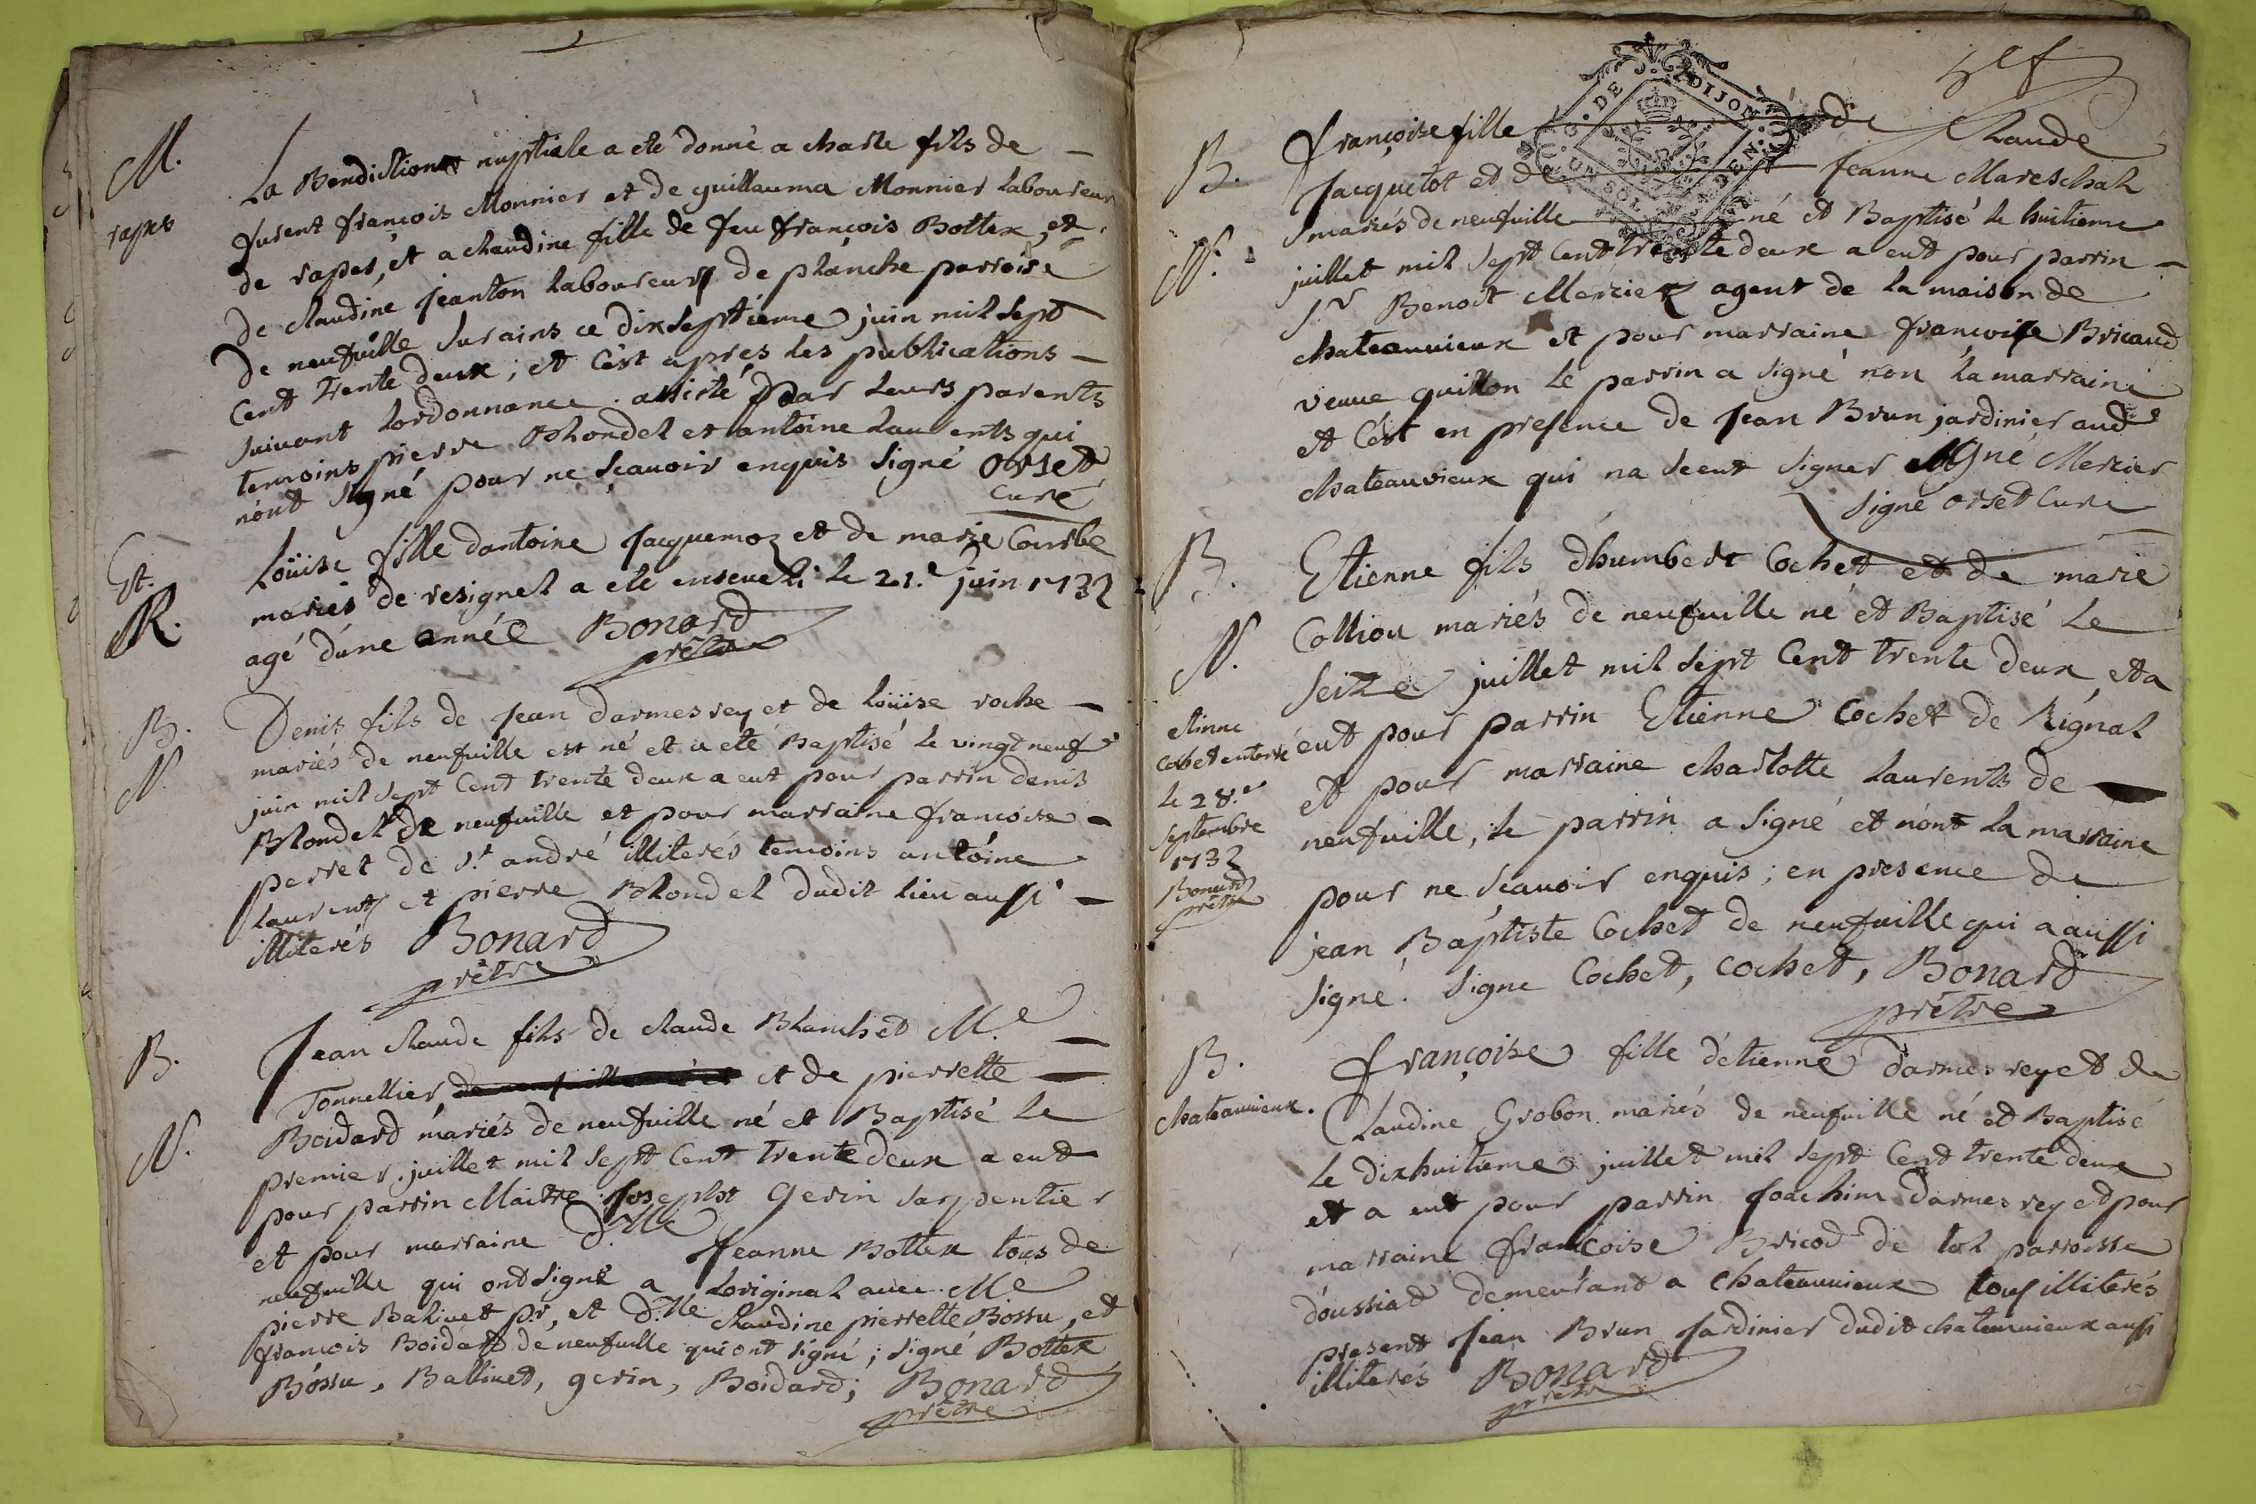 M.
rapes
La Bendiction nuptiale a ete donné a charle fils de
furent françois Monnier et de guillauma Monnier laboureur
de rapes, et a claudine fille de feu françois Bottex, et
de claudine jeanton laboureurs de planche parroise
de neufuille surains ce dixseptieme juin mil sept
Cent trente deux ; et c'est apres les publications
suivant lordonnance . assisté par leurs parents
temoins pierre Blondel et antoine laurents qui
n'ont signé pour ne sçauoir enquis signé orset
Curé
Et.
R.
Loüise fille dantoine jacquemoz et de marie Courbe
mariés de resignel a ete enseueli le 21.e juin 1732
agé d'une année Bonard
prêtre
B.
N.
Denis fils de jean darmesrey et de loüise roche
mariés de neufuille est né et a eté Baptisé le vingt neuf
juin mil sept Cent trente deux a eut pour parrin denis
Blondel de neufuille et pour marraine francoise
perret de s.t andré illiterés temoins antoine
laurents et pierre Blondel dudit lieu aussi
illiterés Bonard
prêtre
B.
N.
Jean claude fils de claude Blanchet M.e
Tonnellier et de pierrette
Boidard mariés de neufuille né et Baptisé le
premier juillet mil sept Cent trente deux a eut
pour parrin Maitre Joseph gerin sarpentier
et pour marraine D.lle Jeanne Bottex tous de
neufuille qui ont signé a loriginal auec M.e
pierre Baliuet p.r, et D.lle claudine pierrette Bossu, et
françois Boidard de neufuille qui ont signé ; signé Bottex
Bossu, Balliuet, gerin, Boidard ; Bonard
prêtre
B.
N.
DE DIJON
françoise fille de Claude
Jacquetot et de Jeanne Mareschal
mariés de neufuille né et Baptisé le huitieme
juillet mil sept Cent trente deux a eut pour parrin
s.r Benoit Mercier agent de la maison de
chateauuieux et pour marraine françoise Bricaud
veuue guillon le parrin a signé non la marraine
et c'est en presence de jean Brun jardinier aud.
chateauvieux qui na sceut signer signé Mercier
signé orset Cure
B.
N.
Etienne fils d'humbert Cochet et de marie
Colliou mariés de neufuille né et Baptisé le
seize juillet mil sept Cent trente deux, et a
eut pour parrin Etienne Cochet de Rignal
et pour marraine charlotte laurents de
neufuille, le parrin a signé et n'ont la marraine
pour ne sçauoir enquis ; en presence de
jean Baptiste Cochet de neufuille qui a aussi
signé. signe Cochet, cochet, Bonard
prêtre
etinne
cochet enterré
le 28.e
septembre
1732
Bonard
prêtre
B.
chateauuieux.
françoise fille d'etienne darmesrey et de
Claudine Grobon mariés de neufuille né et Baptisé
le dixhuitieme juillet mil sept Cent trente deux
et a eut pour parrin joachim darmesrey et pour
marraine françoise Bricod de tol parroisse
d'oussiat demeurant a chateauuieux tous illiterés
present jean Brun jardinier dudit chateauuieux aussi
illiterés Bonard
prêtre